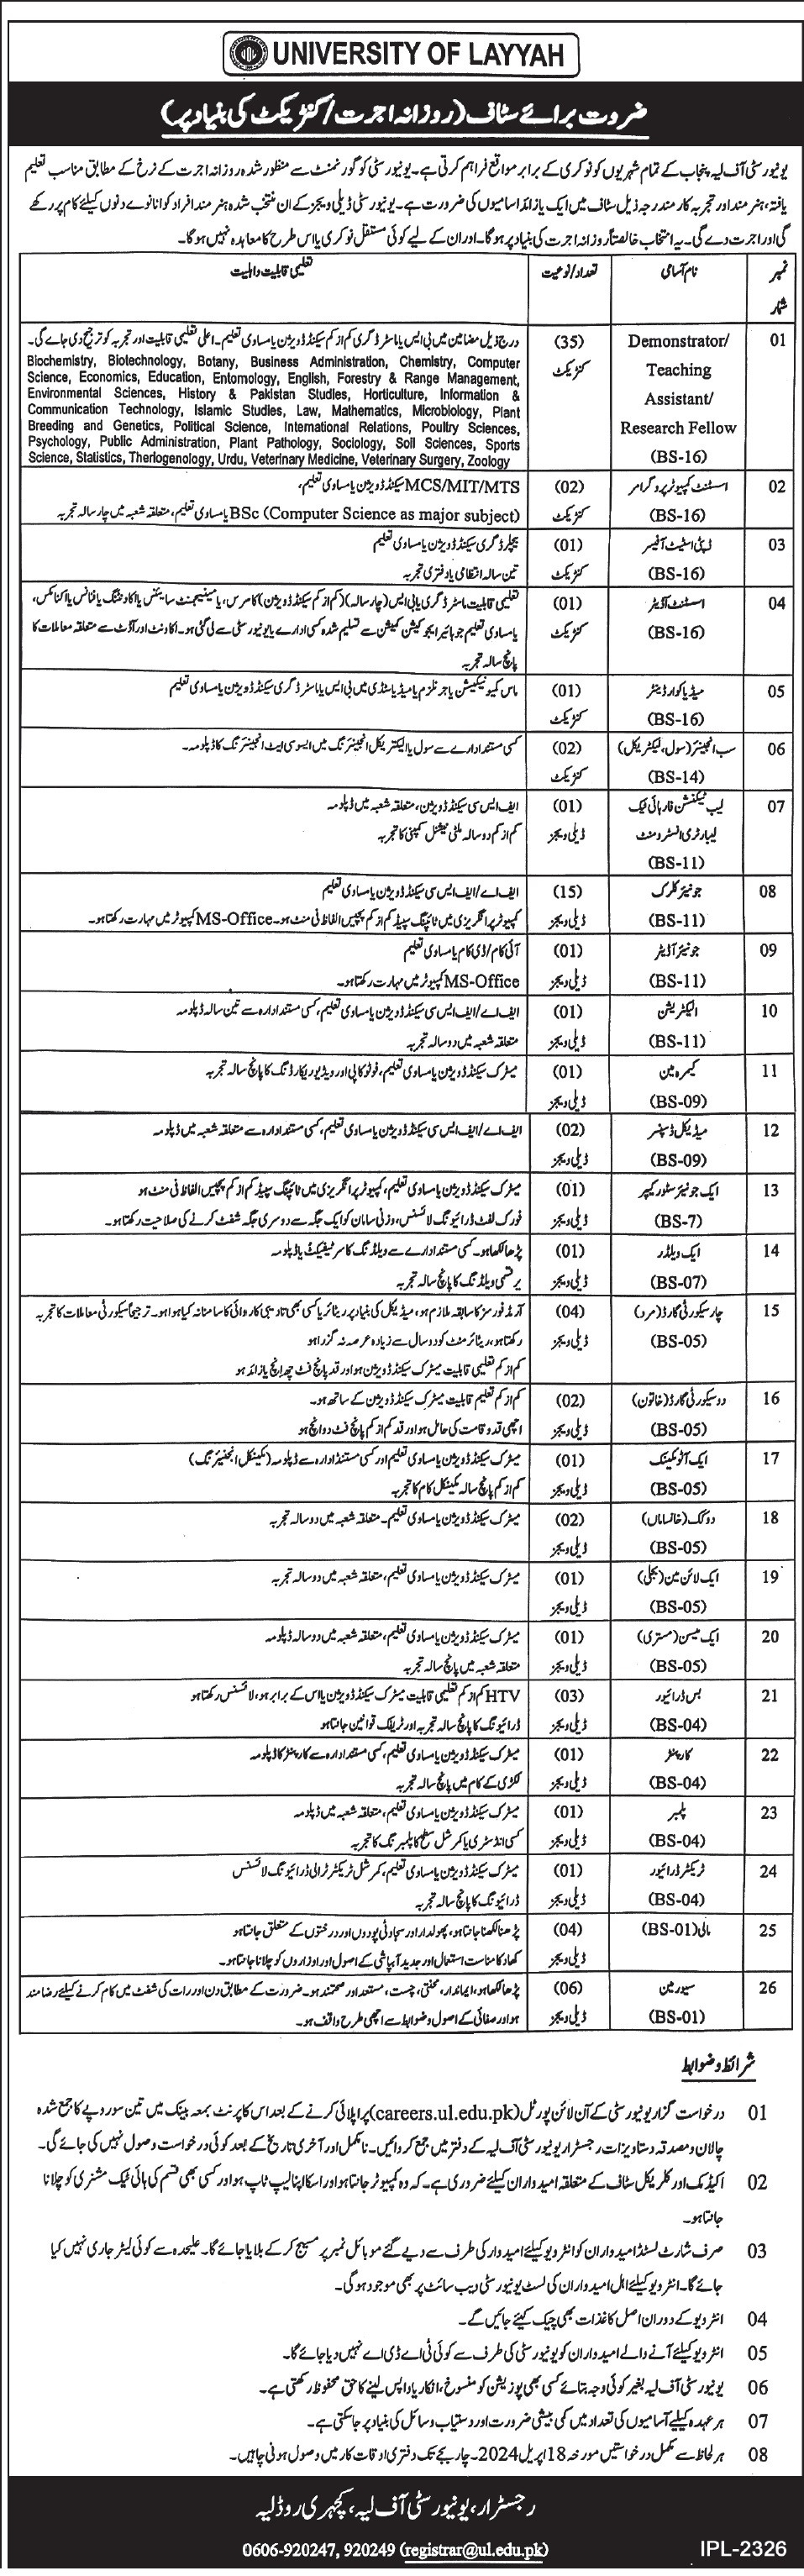 UNIVERSITY OF LAYYAH
ضرورت برائے سٹاف (روزانہ اجرت/کنٹریکٹ کی بنیاد پر)
یونیورسٹی آف لیہ پنجاب کے تمام شہریوں کو نوکری کے برابر مواقع فراہم کرتی ہے۔ یونیورسٹی کو گورنمنٹ سے منظور شدہ روزانہ اجرت کے نرخ کے مطابق مناسب تعلیم
یافتہ، ہنر مند اور تجربہ کار مندرجہ ذیل سٹاف میں ایک یا زائد اسامیوں کی ضرورت ہے۔ یونیورسٹی ڈیلی ویجز کے ان منتخب شدہ ہنر مند افراد کو انانوے دنوں کیلئے کام پر رکھے
گی اور اجرت دے گی۔ یہ انتخاب خالصتاً روزانہ اجرت کی بنیاد پر ہوگا۔ اور ان کے لیے کوئی مستقل نوکری یا اس طرح کا معاہدہ نہیں ہوگا۔
نمبر شمار نام آسامی تعداد/نوعیت تعلیمی قابلیت و اہلیت
01 Demonstrator/ (35) درج ذیل مضامین میں بی ایس یا ماسٹر ڈگری کم از کم سیکنڈ ڈویژن یا مساوی تعلیم۔ اعلیٰ تعلیمی قابلیت اور تجربہ کو ترجیح دی جائے گی۔
Teaching کنٹریکٹ
Assistant/
Research Fellow
(BS-16)
Biochemistry, Biotechnology, Botany, Business Administration, Chemistry, Computer
Science, Economics, Education, Entomology, English, Forestry & Range Management,
Environmental Sciences, History & Pakistan Studies, Horticulture, Information &
Communication Technology, Islamic Studies, Law, Mathematics, Microbiology, Plant
Breeding and Genetics, Political Science, International Relations, Poultry Sciences,
Psychology, Public Administration, Plant Pathology, Sociology, Soil Sciences, Sports
Science, Statistics, Therlogenology, Urdu, Veterinary Medicine, Veterinary Surgery, Zoology
02 اسسٹنٹ کمپیوٹر پروگرامر (02) MCS/MIT/MTS سیکنڈ ڈویژن یا مساوی تعلیم،
(BS-16) کنٹریکٹ BSc (Computer Science as major subject) یا مساوی تعلیم، متعلقہ شعبہ میں چار سالہ تجربہ
03 ڈپٹی اسٹیٹ آفیسر (01) بیچلر ڈگری سیکنڈ ڈویژن یا مساوی تعلیم
(BS-16) کنٹریکٹ تین سالہ انتظامی یا دفتری تجربہ
04 اسسٹنٹ آڈیٹر (01) تعلیمی قابلیت ماسٹر ڈگری یا بی ایس (چار سالہ) (کم از کم سیکنڈ ڈویژن) کامرس، یا مینیجمنٹ سائینس یا اکاونٹنگ یا فنانس یا اکنامکس،
(BS-16) کنٹریکٹ یا مساوی تعلیم جو ہائیر ایجوکیشن کمیشن سے تسلیم شدہ کسی ادارے یا یونیورسٹی سے لی گئی ہو۔ اکاونٹ اور آڈٹ سے متعلقہ معاملات کا
پانچ سالہ تجربہ
05 میڈیا کوارڈینٹر (01) ماس کمیونیکیشن یا جرنلزم یا میڈیا سٹڈی میں بی ایس یا ماسٹر ڈگری سیکنڈ ڈویژن یا مساوی تعلیم
(BS-16) کنٹریکٹ
06 سب انجینئر (سول، الیکٹریکل) (02) کسی مستند ادارے سے سول یا الیکٹریکل انجینئرنگ میں ایسوسی ایٹ انجینئرنگ کا ڈپلومہ۔
(BS-14) کنٹریکٹ
07 لیب ٹیکنشن فار ہائی ٹیک (01) ایف ایس سی سیکنڈ ڈویژن، متعلقہ شعبہ میں ڈپلومہ
لیبارٹری انسٹرومنٹ ڈیلی ویجز کم از کم دو سالہ ملٹی نیشنل کمپنی کا تجربہ
(BS-11)
08 جونیئر کلرک (15) ایف اے/ایف ایس سی سیکنڈ ڈویژن یا مساوی تعلیم
(BS-11) ڈیلی ویجز کمپیوٹر پر انگریزی میں ٹائپنگ سپیڈ کم از کم پچیس الفاظ فی منٹ ہو۔ MS-Office کمپیوٹر میں مہارت رکھتا ہو۔
09 جونیئر آڈیٹر (01) آئی کام/ڈی کام یا مساوی تعلیم
(BS-11) ڈیلی ویجز MS-Office کمپیوٹر میں مہارت رکھتا ہو۔
10 الیکٹریشن (01) ایف اے/ایف ایس سی سیکنڈ ڈویژن یا مساوی تعلیم، کسی مستند ادارہ سے تین سالہ ڈپلومہ
(BS-11) ڈیلی ویجز متعلقہ شعبہ میں دو سالہ تجربہ
11 کیمرہ مین (01) میٹرک سیکنڈ ڈویژن یا مساوی تعلیم، فوٹو کاپی اور ویڈیو ریکارڈنگ کا پانچ سالہ تجربہ
(BS-09) ڈیلی ویجز
12 میڈیکل ڈسپنسر (02) ایف اے/ایف ایس سی سیکنڈ ڈویژن یا مساوی تعلیم، کسی مستند ادارہ سے متعلقہ شعبہ میں ڈپلومہ
(BS-09) ڈیلی ویجز
13 ایک جونیئر سٹور کیپر (01) میٹرک سیکنڈ ڈویژن یا مساوی تعلیم، کمپیوٹر پر انگریزی میں ٹائپنگ سپیڈ کم از کم پچیس الفاظ فی منٹ ہو
(BS-7) ڈیلی ویجز فورک لفٹ ڈرائیونگ لائسنس، وزنی سامان کو ایک جگہ سے دوسری جگہ شفٹ کرنے کی صلاحیت رکھتا ہو۔
14 ایک ویلڈر (01) پڑھا لکھا ہو۔ کسی مستند ادارے سے ویلڈنگ کا سرٹیفکیٹ یا ڈپلومہ
(BS-07) ڈیلی ویجز برقسمی ویلڈنگ کا پانچ سالہ تجربہ
15 چار سیکورٹی گارڈ (مرد) (04) آرمڈ فورسز کا سابقہ ملازم ہو، میڈیکل کی بنیاد پر ریٹائر یا کسی بھی تادیبی کاروائی کا سامنا نہ کیا ہوا ہو۔ ترجیحاً سیکورٹی معاملات کا تجربہ
(BS-05) ڈیلی ویجز رکھتا ہو، ریٹائرمنٹ کو دو سال سے زیادہ عرصہ نہ گزرا ہو
کم از کم تعلیمی قابلیت میٹرک سیکنڈ ڈویژن ہو اور قد پانچ فٹ چھ انچ یا زائد ہو
16 دو سیکورٹی گارڈ (خاتون) (02) کم از کم تعلیم قابلیت میٹرک سیکنڈ ڈویژن کے ساتھ ہو۔
(BS-05) ڈیلی ویجز اچھی قد و قامت کی حامل ہو اور قد کم از کم پانچ فٹ دو انچ ہو
17 ایک آٹو مکینک (01) میٹرک سیکنڈ ڈویژن یا مساوی تعلیم اور کسی مستند ادارہ سے ڈپلومہ (مکینکل انجنیئرنگ)
(BS-05) ڈیلی ویجز کم از کم پانچ سالہ مکینکل کام کا تجربہ
18 دو کک (خانساماں) (02) میٹرک سیکنڈ ڈویژن یا مساوی تعلیم۔ متعلقہ شعبہ میں دو سالہ تجربہ
(BS-05) ڈیلی ویجز
19 ایک لائن مین (بجلی) (01) میٹرک سیکنڈ ڈویژن یا مساوی تعلیم، متعلقہ شعبہ میں دو سالہ تجربہ
(BS-05) ڈیلی ویجز
20 ایک میسن (مستری) (01) میٹرک سیکنڈ ڈویژن یا مساوی تعلیم، متعلقہ شعبہ میں دو سالہ ڈپلومہ
(BS-05) ڈیلی ویجز متعلقہ شعبہ میں پانچ سالہ تجربہ
21 بس ڈرائیور (03) HTV کم از کم تعلیمی قابلیت میٹرک سیکنڈ ڈویژن یا اس کے برابر ہو، لائسنس رکھتا ہو
(BS-04) ڈیلی ویجز ڈرائیونگ کا پانچ سالہ تجربہ اور ٹریفک قوانین جانتا ہو
22 کارپنٹر (01) میٹرک سیکنڈ ڈویژن یا مساوی تعلیم، کسی مستند ادارہ سے کارپنٹر کا ڈپلومہ
(BS-04) ڈیلی ویجز لکڑی کے کام میں پانچ سالہ تجربہ
23 پلمبر (01) میٹرک سیکنڈ ڈویژن یا مساوی تعلیم، متعلقہ شعبہ میں ڈپلومہ
(BS-04) ڈیلی ویجز کسی انڈسٹری یا کمرشل سطح کا پلمبرنگ کا تجربہ
24 ٹریکٹر ڈرائیور (01) میٹرک سیکنڈ ڈویژن یا مساوی تعلیم، کمرشل ٹریکٹر ٹرالی ڈرائیونگ لائسنس
(BS-04) ڈیلی ویجز ڈرائیونگ کا پانچ سالہ تجربہ
25 مالی (BS-01) (04) پڑھنا لکھنا جانتا ہو، پھولدار اور سجاوٹی پودوں اور درختوں کے متعلق جانتا ہو
ڈیلی ویجز کھاد کا مناسب استعمال اور جدید آبپاشی کے اصول اور اوزاروں کو چلانا جانتا ہو۔
26 سیور مین (06) پڑھا لکھا ہو، ایماندار، محنتی، چست، مستعد اور صحتمند ہو۔ ضرورت کے مطابق دن اور رات کی شفٹ میں کام کرنے کیلئے رضامند
(BS-01) ڈیلی ویجز ہو اور صفائی کے اصول و ضوابط سے اچھی طرح واقف ہو۔
شرائط و ضوابط
01 درخواست گزار یونیورسٹی کے آن لائن پورٹل (careers.ul.edu.pk) پر اپلائی کرنے کے بعد اس کا پرنٹ بمعہ بینک میں تین سو روپے کا جمع شدہ
چالان و مصدقہ دستاویزات رجسٹرار یونیورسٹی آف لیہ کے دفتر میں جمع کروائیں۔ نامکمل اور آخری تاریخ کے بعد کوئی درخواست وصول نہیں کی جائے گی۔
02 اکیڈمک اور کلریکل سٹاف کے متعلقہ امیدواران کیلئے ضروری ہے۔ کہ وہ کمپیوٹر جانتا ہو اور اسکا اپنا لیپ ٹاپ ہو اور کسی بھی قسم کی ہائی ٹیک مشنری کو چلانا
جانتا ہو۔
03 صرف شارٹ لسٹڈ امیدواران کو انٹرویو کیلئے امیدوار کی طرف سے دیے گئے موبائل نمبر پر مسیج کر کے بلایا جائے گا۔ علیحدہ سے کوئی لیٹر جاری نہیں کیا
جائے گا۔ انٹرویو کیلئے اہل امیدواران کی لسٹ یونیورسٹی ویب سائٹ پر بھی موجود ہوگی۔
04 انٹرویو کے دوران اصل کاغذات بھی چیک کیئے جائیں گے۔
05 انٹرویو کیلئے آنے والے امیدواران کو یونیورسٹی کی طرف سے کوئی ٹی اے ڈی اے نہیں دیا جائے گا۔
06 یونیورسٹی آف لیہ بغیر کوئی وجہ بتائے کسی بھی پوزیشن کو منسوخ، انکار یا واپس لینے کا حق محفوظ رکھتی ہے۔
07 ہر عہدہ کیلئے آسامیوں کی تعداد میں کمی بیشی ضرورت اور دستیاب وسائل کی بنیاد پر جا سکتی ہے۔
08 ہر لحاظ سے مکمل درخواستیں مورخہ 18 اپریل 2024۔ چار بجے تک دفتری اوقات کار میں وصول ہونی چاہیں۔
رجسٹرار، یونیورسٹی آف لیہ، کچہری روڈ لیہ
0606-920247, 920249 (registrar@ul.edu.pk)
IPL-2326